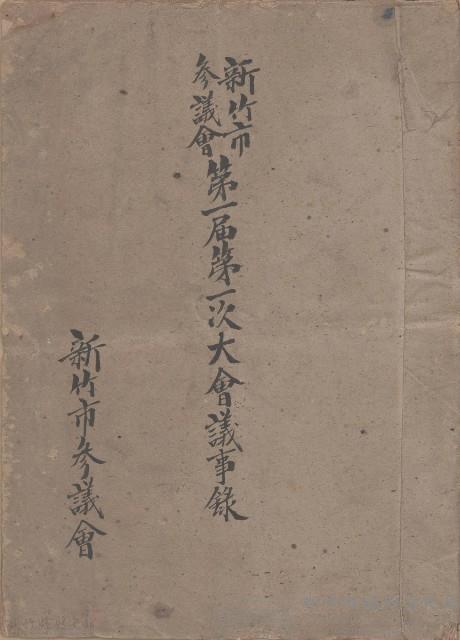 新竹市
參議會
第一届第一次大會議事錄
新竹市參議會